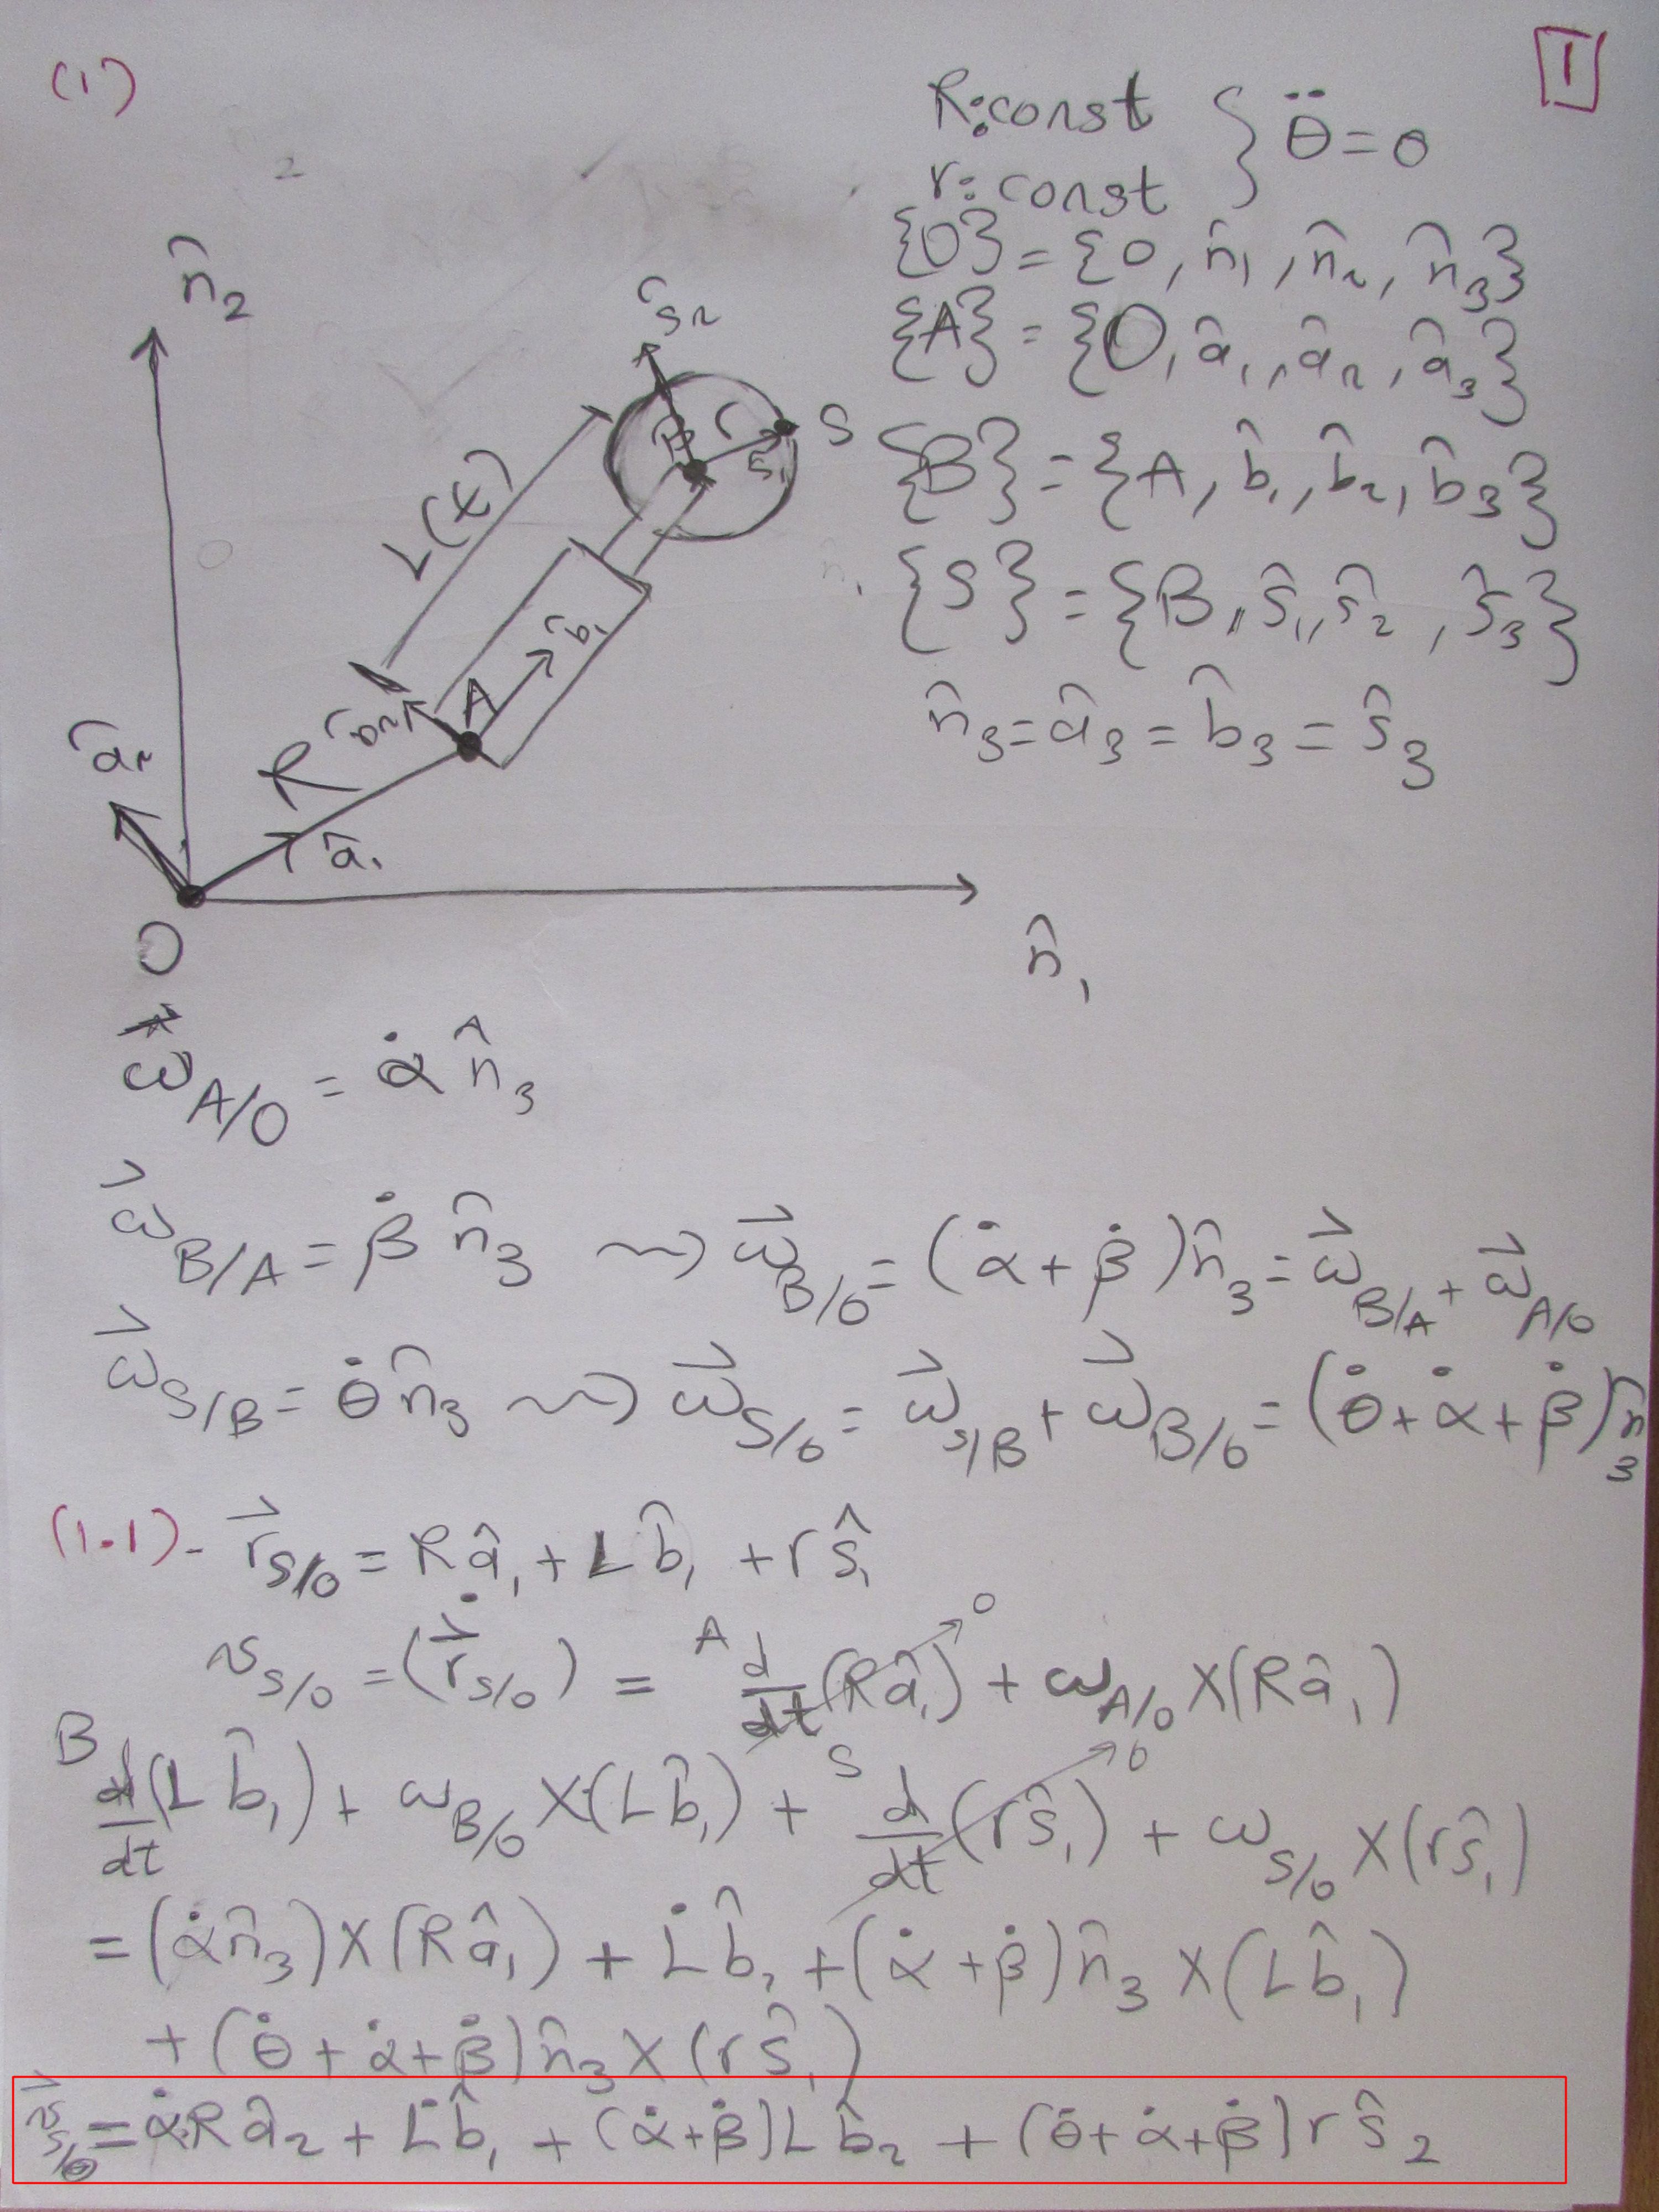 (1)
1
R: const
r: const } θ̈ = 0
{O} = {O, n̂₁, n̂₂, n̂₃}
{A} = {O, â₁, â₂, â₃}
{B} = {A, b̂₁, b̂₂, b̂₃}
{S} = {B, ŝ₁, ŝ₂, ŝ₃}
n̂₃ = â₃ = b̂₃ = ŝ₃
n̂₂
ŝ₂
B
r
ŝ₁
S
L(t)
b̂₁
A
b̂₂
R
â₂
â₁
O
n̂₁
ω⃗_A/O = α̇ n̂₃
ω⃗_B/A = β̇ n̂₃ ⇝ ω⃗_B/O = (α̇ + β̇) n̂₃ = ω⃗_B/A + ω⃗_A/O
ω⃗_S/B = θ̇ n̂₃ ⇝ ω⃗_S/O = ω⃗_S/B + ω⃗_B/O = (θ̇ + α̇ + β̇) n̂₃
(1.1) - r⃗_S/O = R â₁ + L b̂₁ + r ŝ₁
v_S/O = (r⃗̇_S/O) = ᴬd/dt (R â₁) → 0 + ω_A/O × (R â₁)
ᴮd/dt (L b̂₁) + ω_B/O × (L b̂₁) + ˢd/dt (r ŝ₁) → 0 + ω_S/O × (r ŝ₁)
= (α̇ n̂₃) × (R â₁) + L̇ b̂₁ + (α̇ + β̇) n̂₃ × (L b̂₁)
+ (θ̇ + α̇ + β̇) n̂₃ × (r ŝ₁)
v⃗_S/O = α̇ R â₂ + L̇ b̂₁ + (α̇ + β̇) L b̂₂ + (θ̇ + α̇ + β̇) r ŝ₂